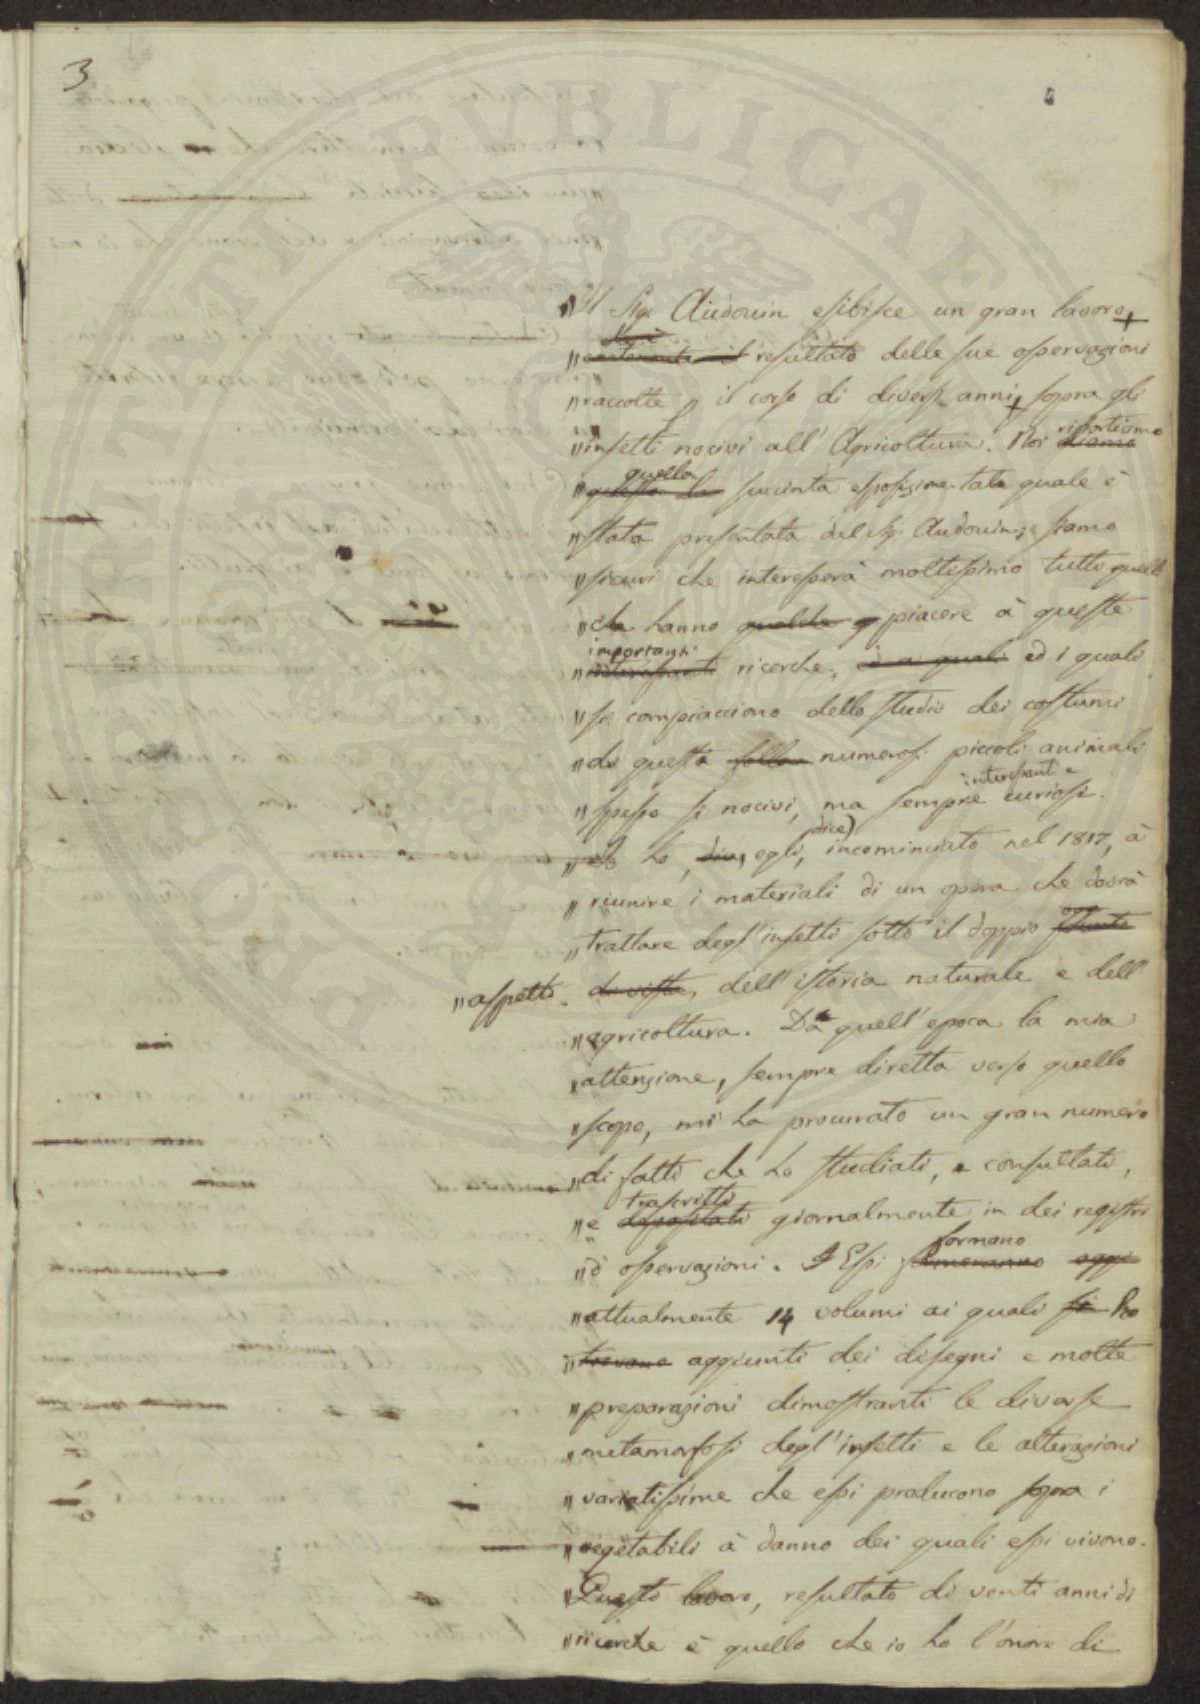 3
"Il Sigr. Audouin esibisce un gran lavoro,
"contenente il resultato delle sue osservazioni
"raccolte p il corso di diversi anni, sopra gli
"insetti nocivi all' Agricoltura. Noi diamo riportiamo
"questa la quella succinta esposizione tale quale è
"stata presentata dal Sr. Audouin; siamo
"sicuri che interesserà moltessimo tutti quelli
"che hanno qualche piacere à queste
"interessanti importanti ricerche, ed i quali
"si compiacciono dello studio dei costumi
"di questa folla numerosi piccoli animali
"spesso si nocivi, ma sempre interessanti e curiosi.
"Io ho, dice) egli, incominciato nel 1817, à
"riunire i materiali di un opera che dovrà
"trattare degl' insetti sotto il doppio punto
"aspetto di vista, dell' istoria naturale e dell'
"agricoltura. Da quell' epoca la mia
"attenzione, sempre diretta verso quello
"scopo, mi ha procurato un gran numero
"di fatti che ho studiati, e consultati,
"e depositati trascritti giornalmente in dei registri
"di osservazioni. Essi formeranno formano oggi
"attualmente 14 volumi ai quali si ho
"trovano aggiunti dei disegni e molte
"preparazioni dimostranti le diverse
"metamorfosi degl' insetti e le alterazioni
"variatissime che essi producono sopra i
"vegetabili à danno dei quali essi vivono.
"Questo lavoro, resultato di venti anni di
"ricerche è quello che io ho l'onore di